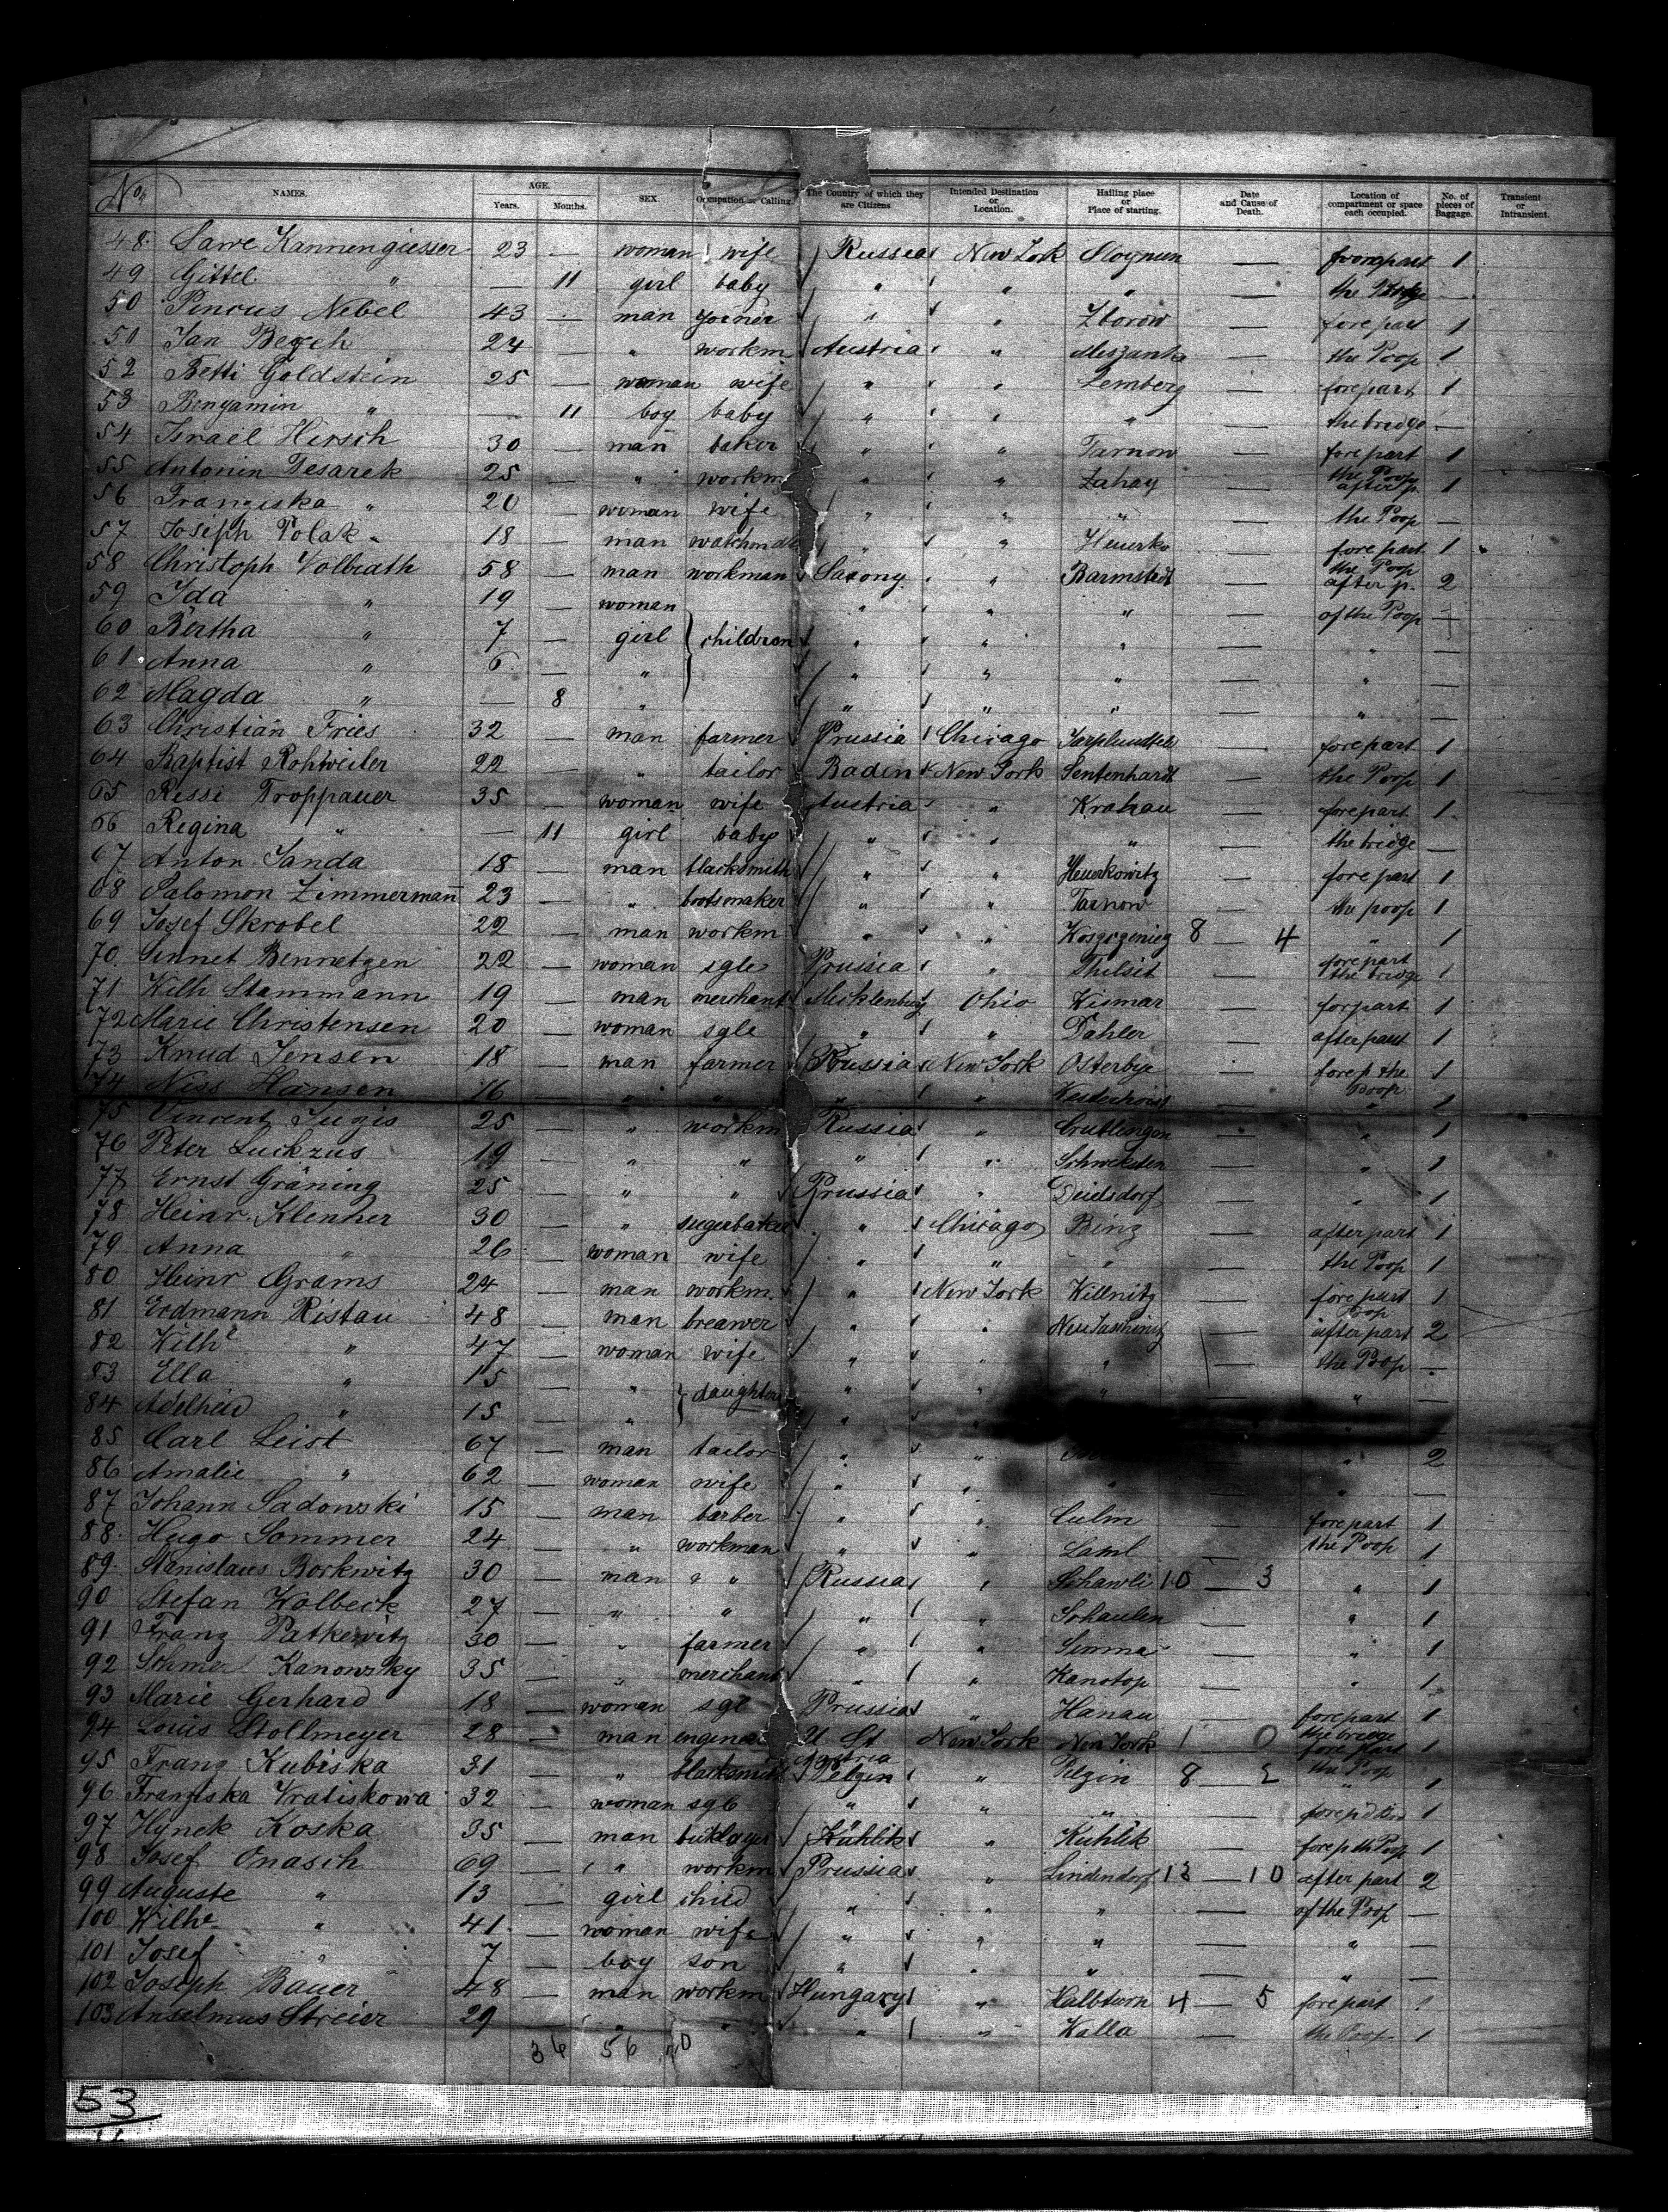 No. NAMES. AGE. Years. Months. SEX Occupation or Calling. The Country of which they are Citizens Intended Destination or Location. Hailing place or Place of starting. Date and Cause of Death. Location of compartment or space each occupied. No. of pieces of Baggage. Transient or Intransient.
48. Sawe Kannengiesser 23 — woman wife Russia New York — 1
49 Gittel " — 11 girl baby " " " — the —
50 Pincus Nebel 43 man joiner " " Zborow — forepart 1
51 Jan 24 — " workm Austria " — the Poop 1
52 Betti Goldstein 25 woman wife " " Lemberg — forepart 1
53 Benyamin " — 11 boy baby " " " — the bridge —
54 Israel Hirsch 30 — man baker " " Tarnow — forepart 1
55 Antonin Tesarek 25 — " workm " " Zahay — the Poop after p. 1
56 Franziska " 20 — woman wife " " " — the Poop —
57 Joseph Polak 18 — man " " — forepart 1
58 Christoph Volbrath 58 — man workman Saxony " Barmstedt — the Poop after p. 2
59 Ida " 19 — woman " " " — of the Poop —
60 Bertha " 7 — girl children " " " — " —
61 Anna " 6 " " " " — " —
62 Magda " — 8 " " " " — " —
63 Christian Fries 32 — man farmer Prussia Chicago — forepart 1
64 Baptist Rohweiler 22 — " tailor Baden New York Sentenhardt — the Poop 1
65 Ressi Troppauer 35 — woman wife Austria " Krakau — forepart 1
66 Regina " — 11 girl baby " " " — the bridge —
67 Anton Sanda 18 — man blacksmith " " — forepart 1
68 Salomon Zimmermann 23 — " bootsmaker " " Tarnow — the poop 1
69 Josef Skrobel 22 — man workm " " 8 — 4 " 1
70. Sinnet Bennetzen 22 — woman sgle Prussia " Thilsit — forepart the bridge 1
71 Wilh Stammann 19 — man merchant Mecklenburg Ohio Wismar — forpart 1
72 Marie Christensen 20 — woman sgle " " Dahler — after part 1
73 Knud Jensen 18 — man farmer Prussia New York Osterbye — forep the 1
74 Niss Hansen 16 — " " " " Poop " 1
75 Vincent 25 — " workm Russia " — " 1
76 Peter Luckzus 19 — " " " " — " 1
77 Ernst Gräning 25 — " " Prussia " — " 1
78 Heinr. Klenner 30 — " Chicago Binz — after part 1
79 Anna " 26 — woman wife " " " — the Poop 1
80 Heinr Grams 24 — man workm. " New York Killnitz — forepart 1
81 Erdmann Ristau 48 — man breawer " " — Poop after part 2
82 Wilhe " 47 — woman wife " " " — the Poop —
83 Ella " 15 — " daughters " " " — " —
84 Adelheid " 15 — " " "
85 Carl Leist 67 — man tailor " " " 2
86 Amalie " 62 — woman wife " " " " —
87 Johann Sadowski 15 — man barber " " Culm — forepart 1
88. Hugo Sommer 24 — " workman " " — the Poop 1
89. Stanislaus Borkwitz 30 — man " " Russia " Schawli 10 — 3 " 1
90 Stefan Walbeck 27 — " " " " Schaulen — " 1
91 Franz Patkewitz 30 — " farmer " " — " 1
92 Kanowsky 35 — " merchant " " Kanotop — " 1
93 Marie Gerhard 18 — woman sgl Prussia " Hanau — forepart 1
94 Louis Stollmeyer 28 — man U St New York New York 1 0 the bridge forepart 1
95 Franz Kubiska 31 — " blacksmith Austria Pelzin " Pelzin 8 — 2 the Poop " 1
96 Franziska Vratiskowa 32 — woman sgle " " " — 1
97 Hynek Koska 35 — man Kühlik " Kühlik — forep th Poop 1
98 Josef Onasch 69 — " workm Prussia " Lindendorf 12 — 10 after part 2
99 Auguste " 13 — girl child " " " — of the Poop —
100 Wilhe " 41 — woman wife " " " — " —
101 Josef " 7 — boy son " " " — " —
102 Joseph Bauer 48 — man workm Hungary " Halbturn 4 — 5 forepart 1
103 Anselmus Streier 29 — " " " " Kalla — the Poop 1
36 56 10
53